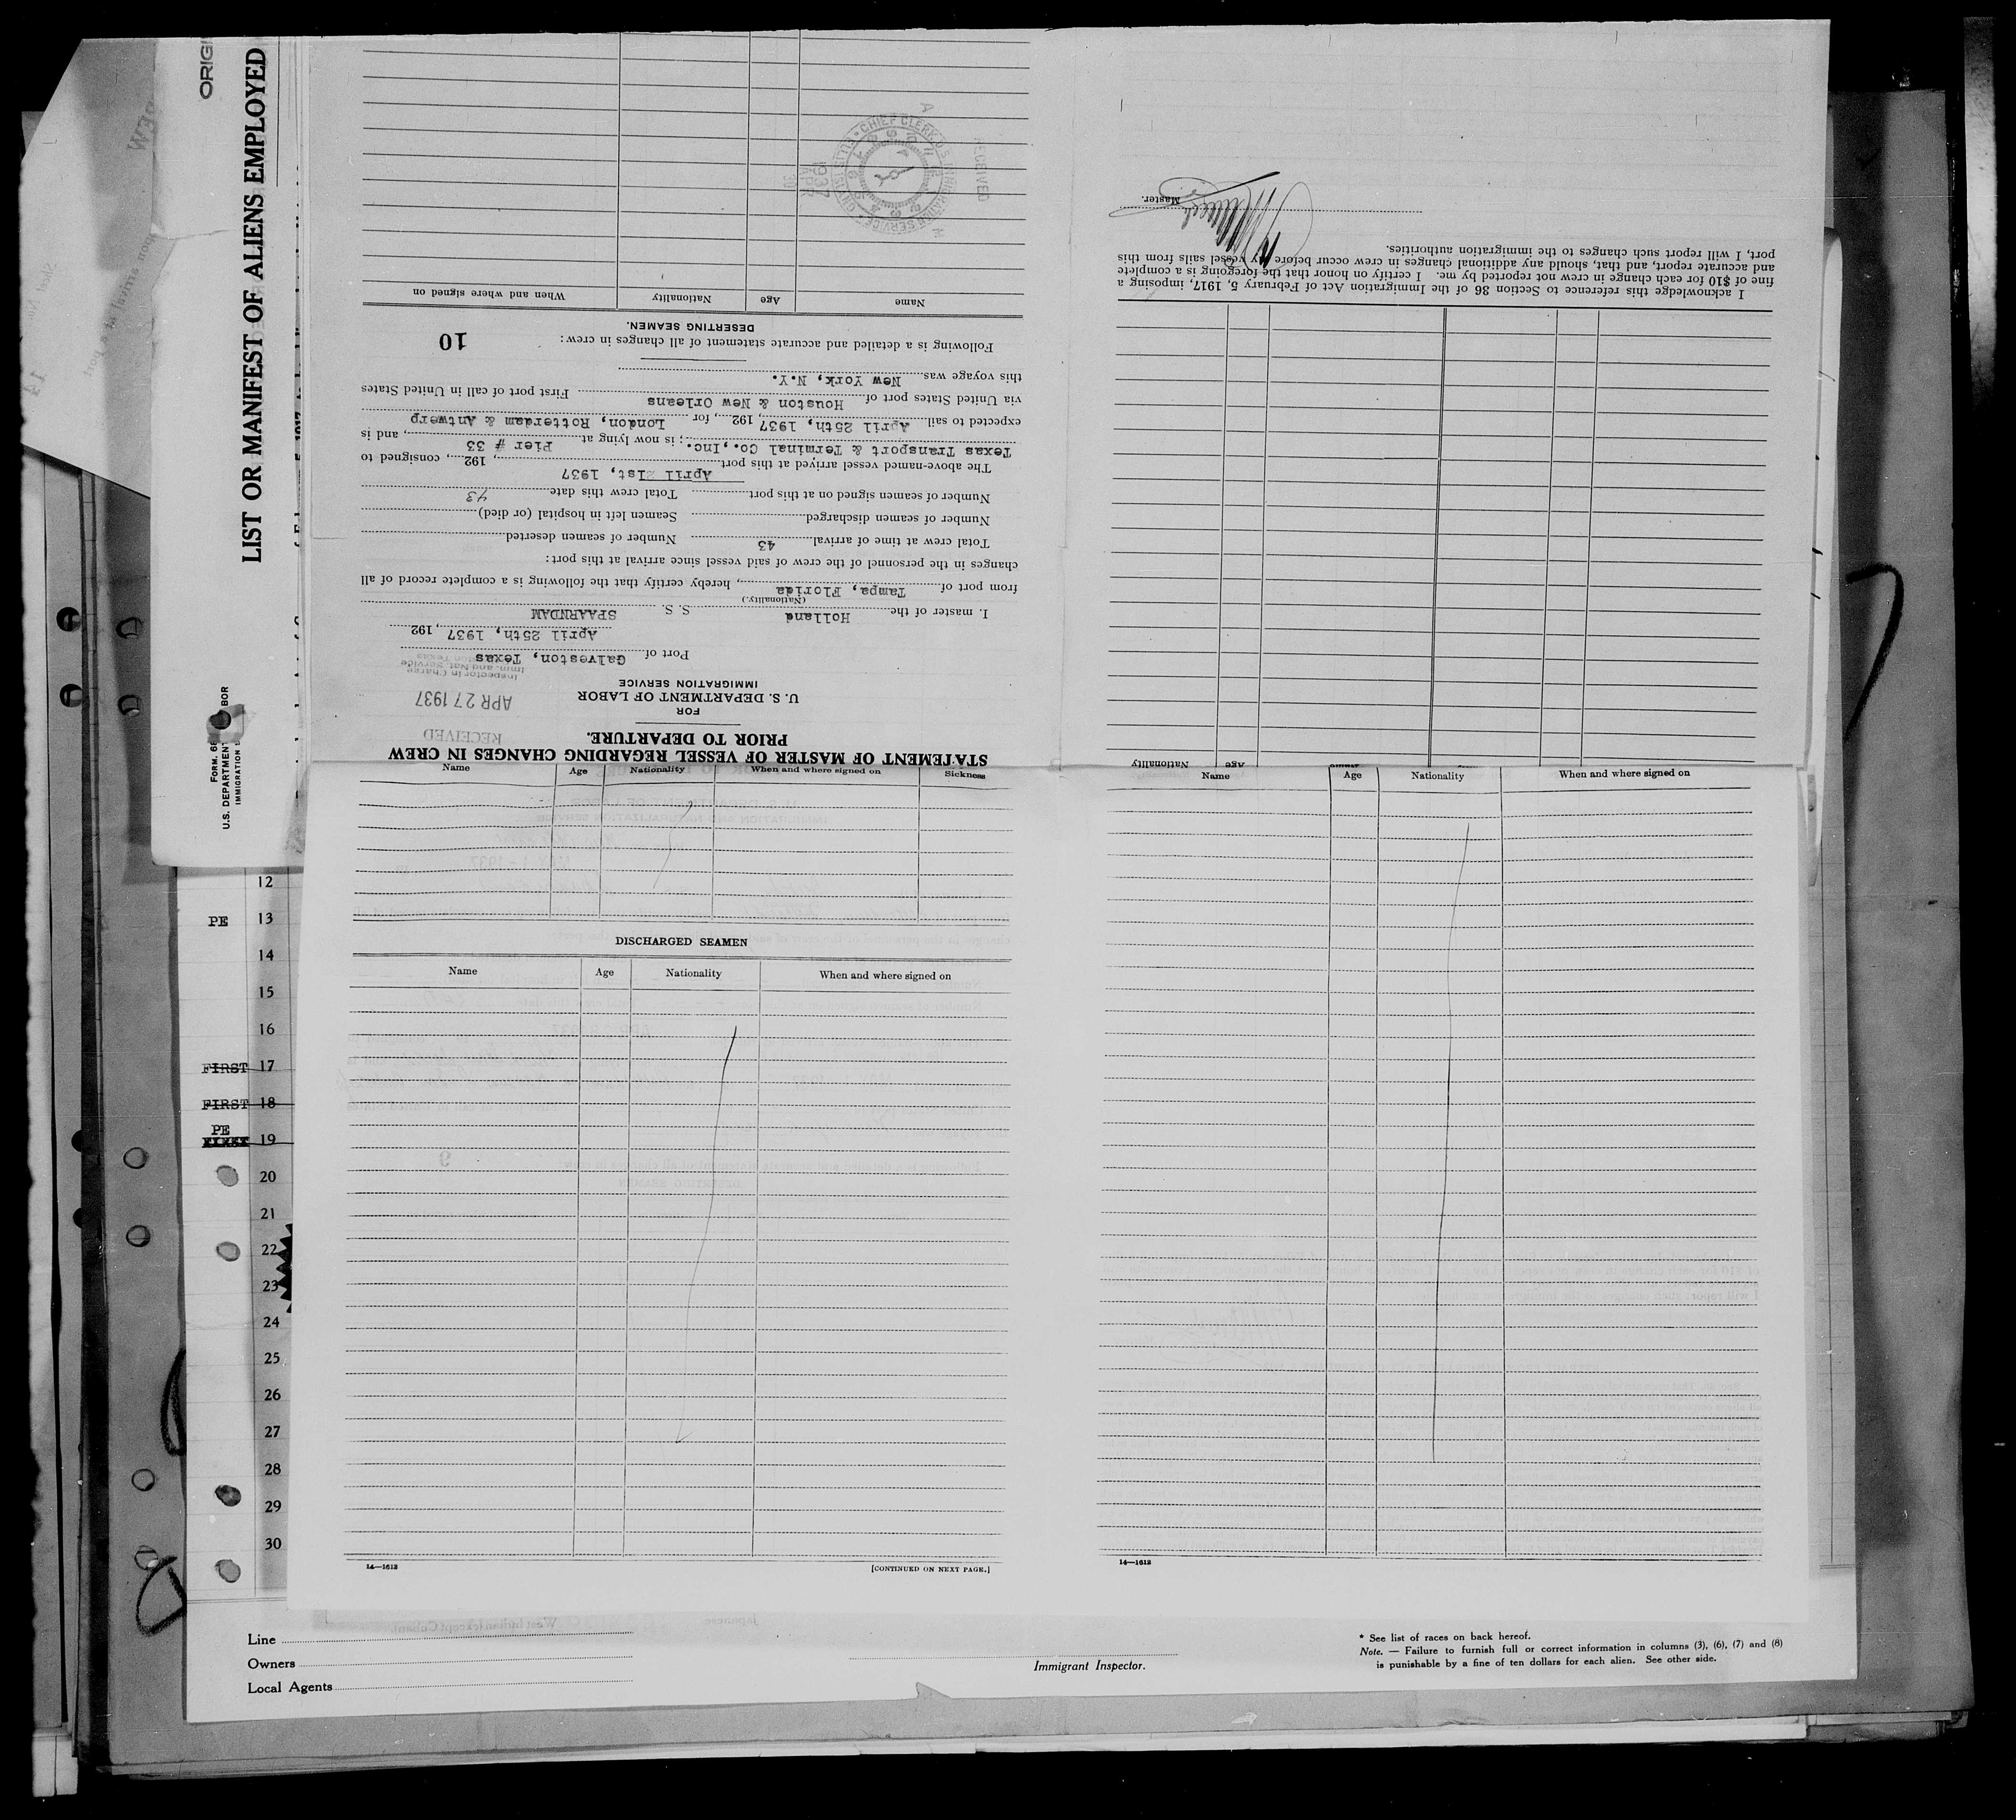 ORIGI
LIST OR MANIFEST OF ALIENS EMPLOYED
U.S. DEPARTMENT
IMMIGRATION
STATEMENT OF MASTER OF VESSEL REGARDING CHANGES IN CREW
PRIOR TO DEPARTURE.
FOR
U. S. DEPARTMENT OF LABOR
IMMIGRATION SERVICE
RECEIVED
APR 27 1937
Inspector in Charge
Imm. and Nat. Service
Port of Galveston, Texas
April 25th, 1937, 192
I, master of the Holland S. S. SPAARNDAM
(Nationality.)
from port of Tampa, Florida, hereby certify that the following is a complete record of all
changes in the personnel of the crew of said vessel since arrival at this port:
Total crew at time of arrival 43 Number of seamen deserted
Number of seamen discharged Seamen left in hospital (or died)
Number of seamen signed on at this port Total crew this date 43
The above-named vessel arrived at this port April 21st, 1937, 192, consigned to
Texas Transport & Terminal Co., Inc.; is now lying at Pier # 33, and is
expected to sail April 25th, 1937 192, for London, Rotterdam & Antwerp
via United States port of Houston & New Orleans First port of call in United States
this voyage was New York, N.Y.
Following is a detailed and accurate statement of all changes in crew: 10
DESERTING SEAMEN.
Name Age Nationality When and where signed on
RECEIVED
CHIEF CLERK'S
1937
APR
30
Nationality
I acknowledge this reference to Section 36 of the Immigration Act of February 5, 1917, imposing a
fine of $10 for each change in crew not reported by me. I certify on honor that the foregoing is a complete
and accurate report, and that, should any additional changes in crew occur before my vessel sails from this
port, I will report such changes to the immigration authorities.
Master.
Name Age Nationality When and where signed on Sickness
DISCHARGED SEAMEN
Name Age Nationality When and where signed on
14—1612 [CONTINUED ON NEXT PAGE.]
Name Age Nationality When and where signed on
14—1612
12
PE 13
14
15
16
FIRST 17
FIRST 18
PE
19
20
21
22
23
24
25
26
27
28
29
30
Line
Owners
Local Agents
Immigrant Inspector.
* See list of races on back hereof.
Note. — Failure to furnish full or correct information in columns (3), (6), (7) and (8)
is punishable by a fine of ten dollars for each alien. See other side.